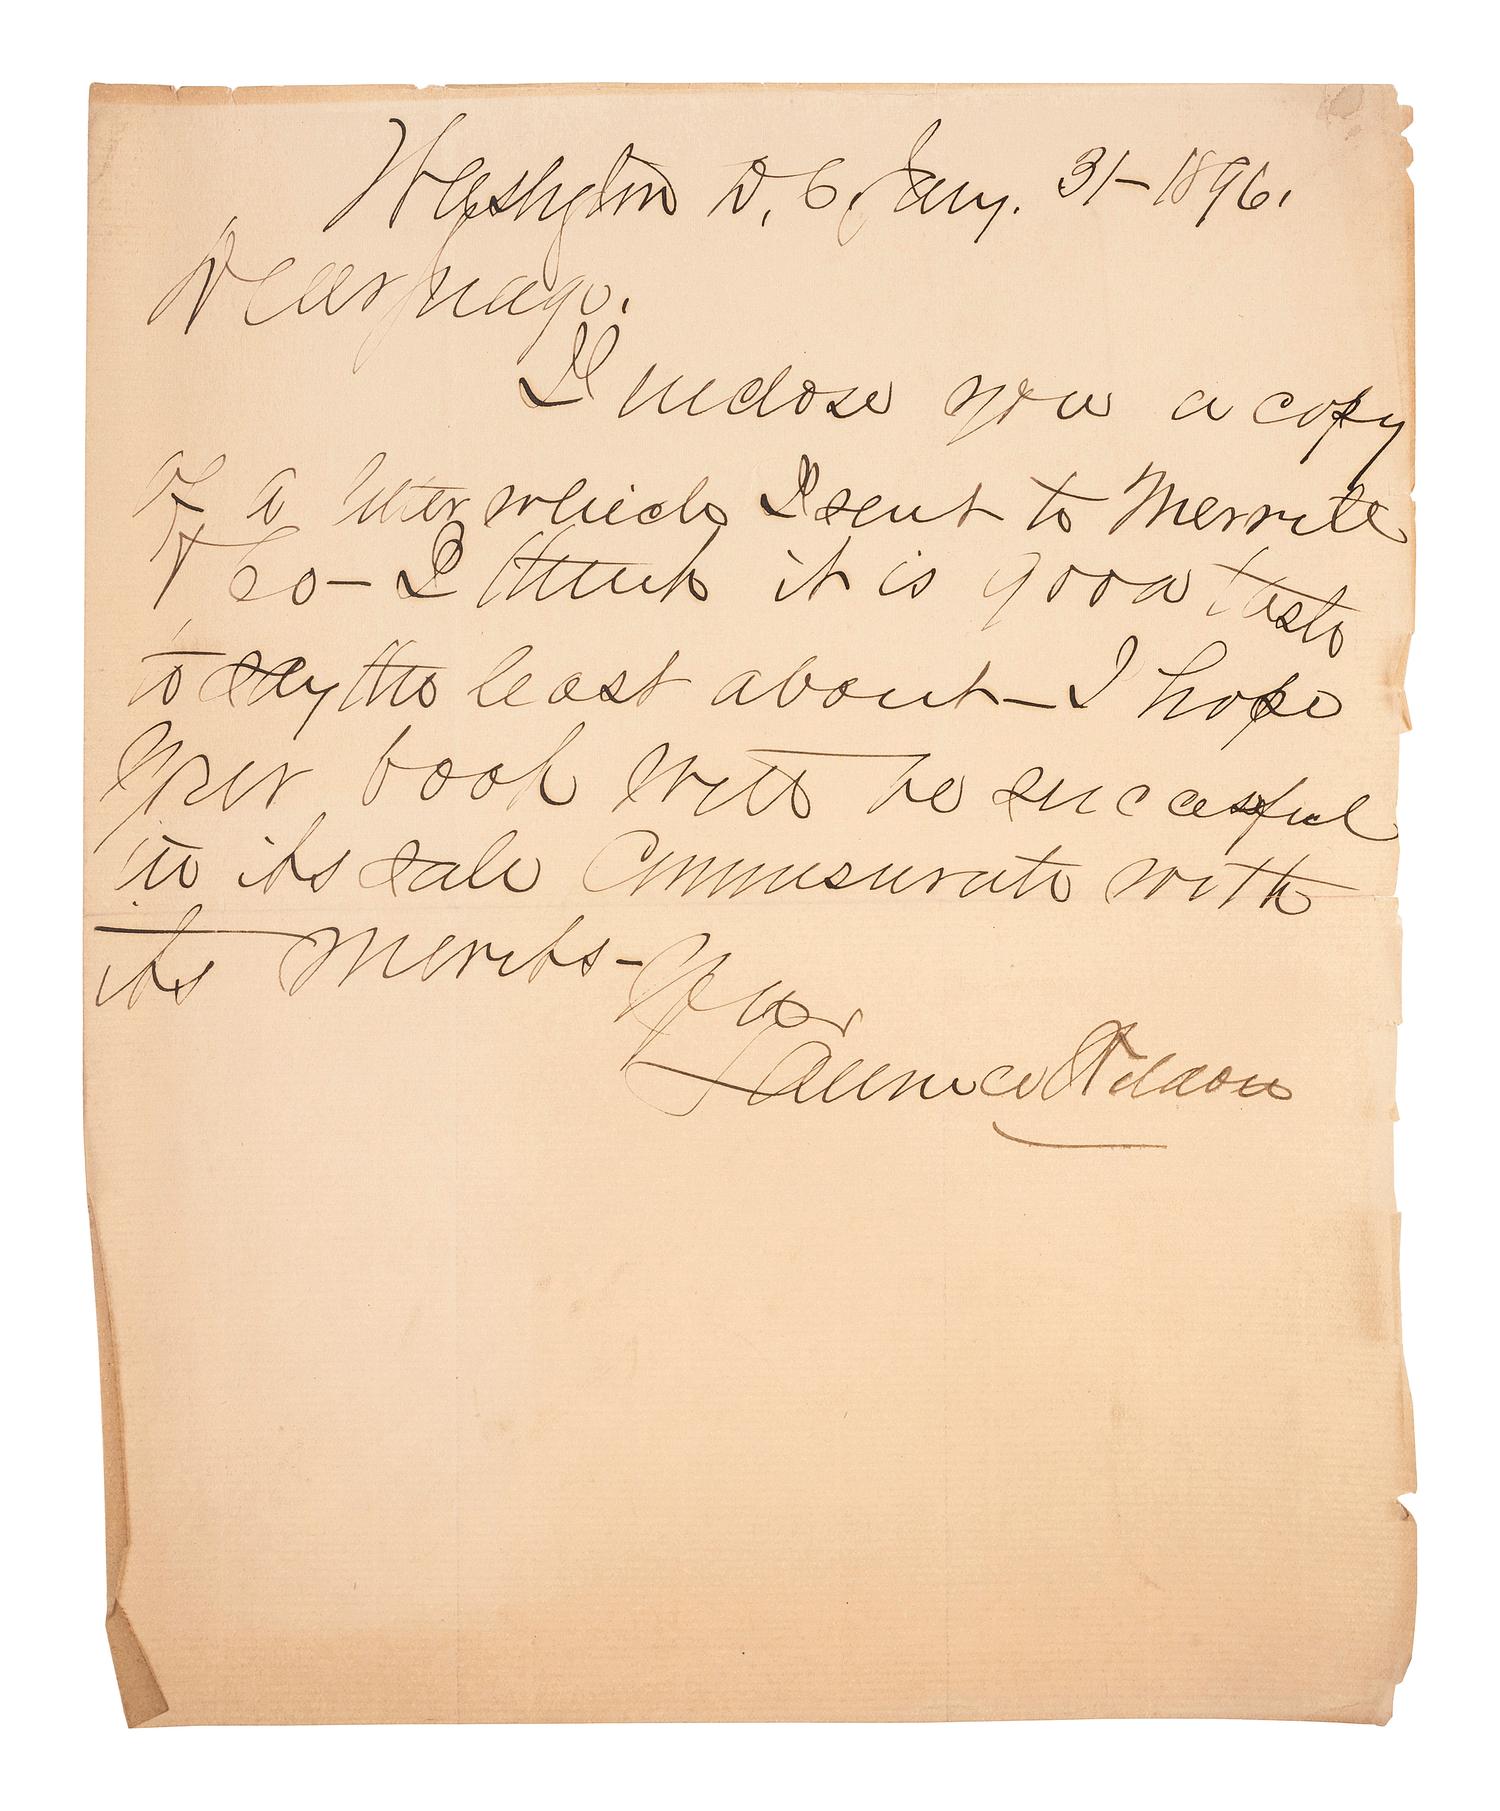 Washington D.C. Jany. 31 – 1896.
Dear
I inclose you a copy
of a letter which I sent to Merrill
& Co – I think it is good taste
to say the least about – I hope
your book will be successful
in its sale Commensurate with
its merits – Your
Laurence